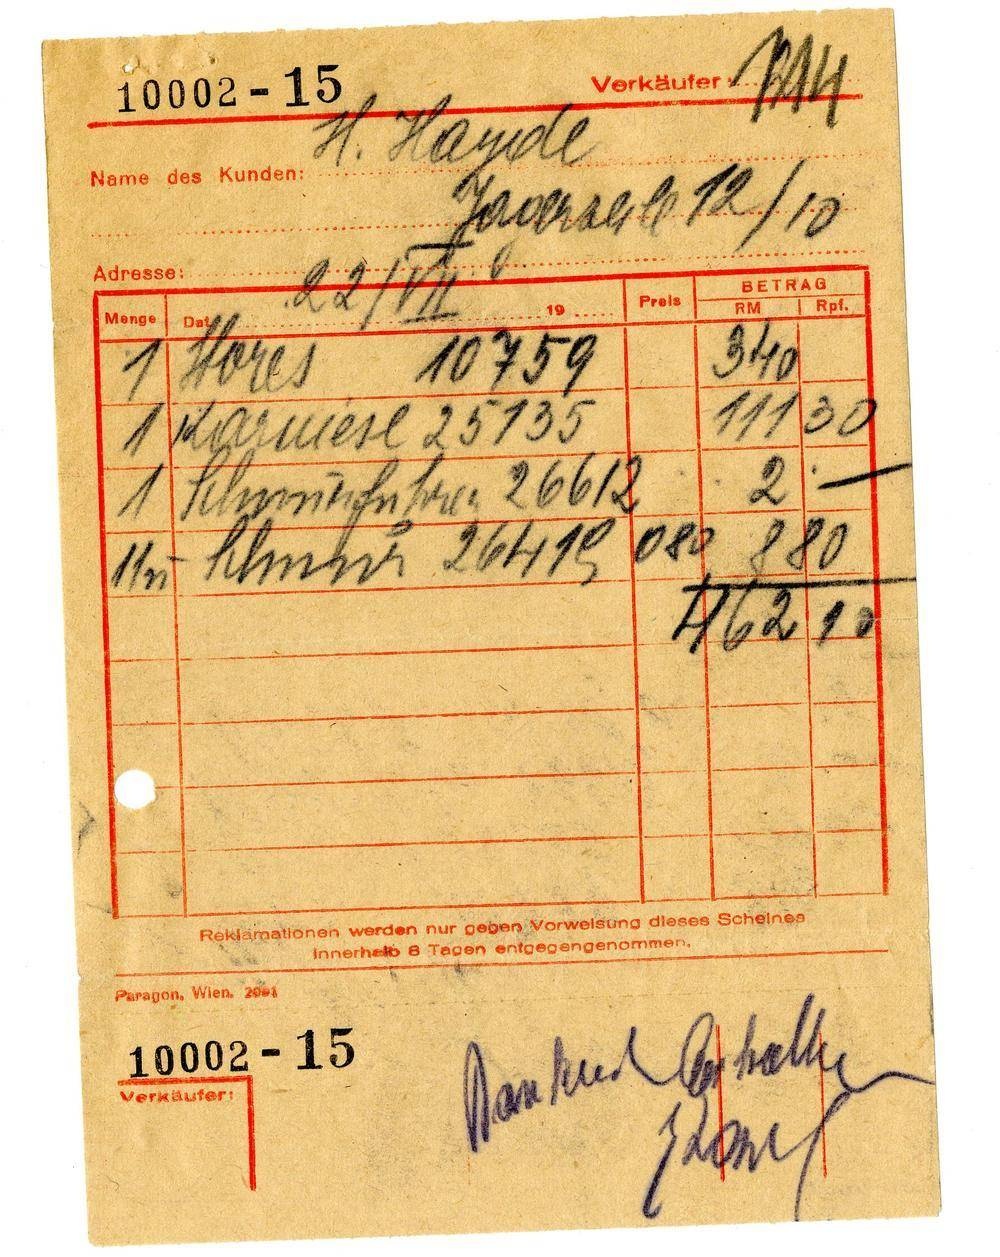 10002 - 15 Verkäufer:
Name des Kunden: H. Hayde
12/10
Adresse:
Menge Dat. 22/VII 19 Preis BETRAG RM Rpf.
1 Stores 10759 340
1 Karniese 25135 111 30
1 26612 2 —
11m Schnur 26419 080 8 80
462 10
Reklamationen werden nur gegen Vorweisung dieses Scheines
innerhalb 8 Tagen entgegengenommen.
Paragon, Wien. 2091
10002 - 15
Verkäufer:
Dankend erhalten